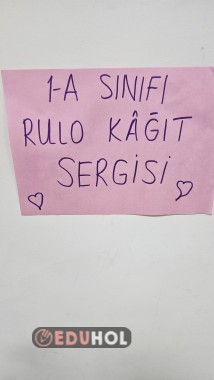 1-A SINIFI
RULO KÂĞIT
SERGİSİ
EDUHOL